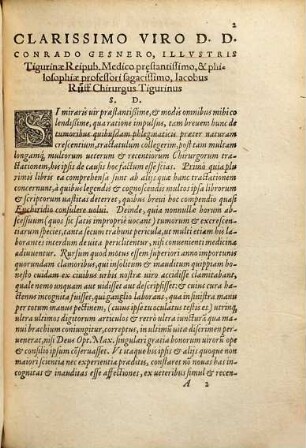 2
CLARISSIMO VIRO D. D.
CONRADO GESNERO, ILLVSTRIS
Tigurinæ Reipub. Medico præstantissimo, & phi-
losophiæ professori sagacissimo, Iacobus
Rüff Chirurgus Tigurinus
S. D.
SI miraris vir præstantissime, & modis omnibus mihi co
lendissime, qua ratione impulsus, tam breuem hunc de
tumoribus quibusdam phlegmaticis præter naturam
crescentium, tractatulum collegerim, post tam multam
longamq; multorum veterum & recentiorum Chirurgorum tra-
ctationem, hos ipse de causis hoc factum esse sciat. Primò quia plu
rimi libris ea comprehensa sunt ab alijs quæ hanc tractationem
concernunt, à quibus legendis & cognoscendis multos ipsa librorum
& scriptorum vastitas deterret, quibus breui hoc compendio quasi
Enchiridio consulere volui. Deinde, quia nonnullæ horum ab-
scessuum (quos sic satis impropriè uoco) tumorum & excrescen-
tiarum species, tanta secum trahunt pericula, ut multi etiam his labo-
rantes incendere de vita periclitentur, nisi conuenienti medicina
adiuuentur. Rursum quod motus essem superiori anno importuna
quorundam clamoribus, qui insolitum & inauditum quippiam ho-
nesto cuidam ex ciuibus urbis nostræ viro accidisse clamitabant,
quale nemo unquam aut uidisset aut descripsisset: & cuius cura ha-
ctenus incognita fuisset, qui ganglio laborans, qua in sinistra manu
per totum manus pectinem, (cuius ipse tu oculatus testis es) utrinq;
ultra ultimos digitorum articulos & retrò ultra iuncturam qua ma-
nui brachium coniungitur, correptus, in ultimum uitæ discrimen perue-
nerat, nisi Deus Opt. Max. singulari gratia bonorum uirorum ope
& consilio ipsum conseruasset. Vt itaque his ipsis & alijs quoque non
maiori scientia nec experientia præditis, constaret non nouas has in-
cognitas & inauditas esse affectiones, ex ueteribus simul & recen-
A 2